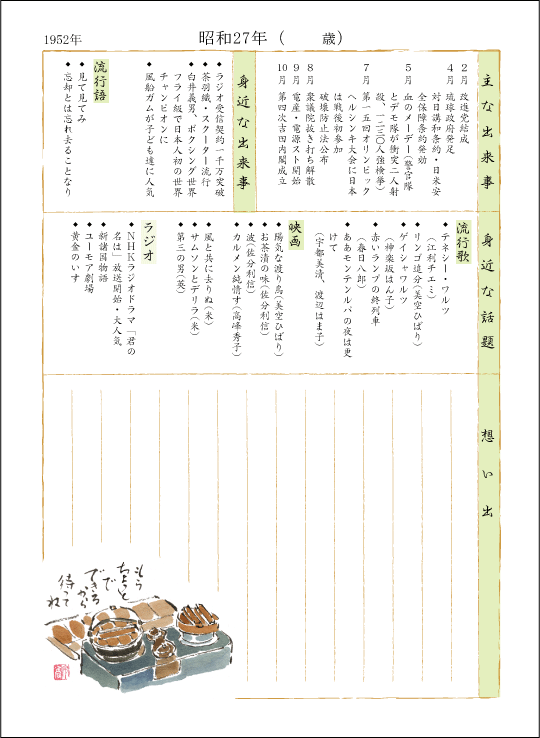 1952年
昭和27年（　　歳）
主な出来事
２月　改進党結成
４月　琉球政府発足
対日講和条約・日米安
全保障条約発効
５月　血のメーデー（警官隊
とデモ隊が衝突二人射
殺、一二三〇人強検挙）
７月　第一五回オリンピック
ヘルシンキ大会に日本
は戦後初参加
破壊防止法公布
８月　衆議院抜き打ち解散
９月　電産・電源スト開始
10月　第四次吉田内閣成立
身近な出来事
◆ラジオ受信契約一千万突破
◆茶羽織・スクーター流行
◆白井義男、ボクシング世界
フライ級で日本人初の世界
チャンピオンに
◆風船ガムが子ども達に人気
流行語
◆見て見てみ
◆忘却とは忘れ去ることなり
身近な話題
流行歌
◆テネシー・ワルツ
（江利チエミ）
◆リンゴ追分（美空ひばり）
◆ゲイシャワルツ
（神楽坂はん子）
◆赤いランプの終列車
（春日八郎）
◆ああモンテンルパの夜は更
けて
（宇都美清、渡辺はま子）
映画
◆陽気な渡り鳥（美空ひばり）
◆お茶漬の味（佐分利信）
◆波（佐分利信）
◆カルメン純情す（高峰秀子）
◆風と共に去りぬ（米）
◆サムソンとデリラ（米）
◆第三の男（英）
ラジオ
◆ＮＨＫラジオドラマ「君の
名は」放送開始・大人気
◆新諸国物語
◆ユーモア劇場
◆黄金のいす
想い出
もう
ちょっと
で
できるから
待ってね